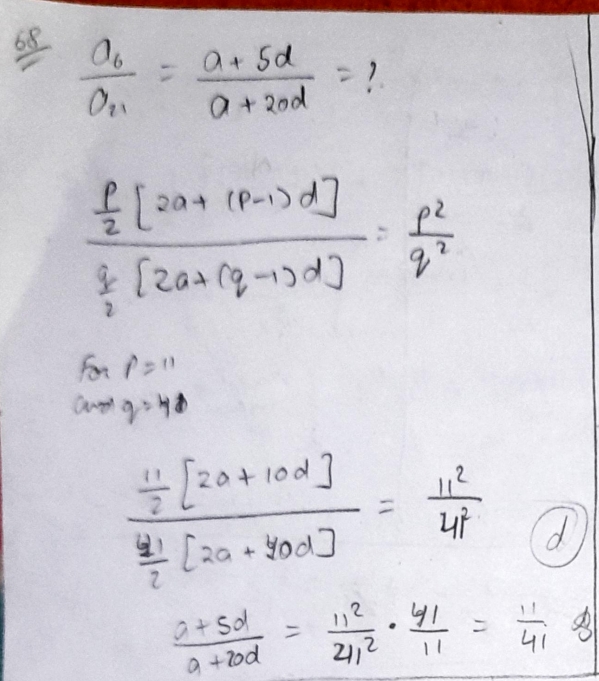 68
a₆/a₂₁ = (a + 5d)/(a + 20d) = ?
(p/2 [2a + (p-1)d])/(q/2 [2a + (q-1)d]) = p²/q²
For p = 11
and q = 41
(11/2 [2a + 10d])/(41/2 [2a + 40d]) = 11²/41²
d
(a + 5d)/(a + 20d) = 11²/41² · 41/11 = 11/41